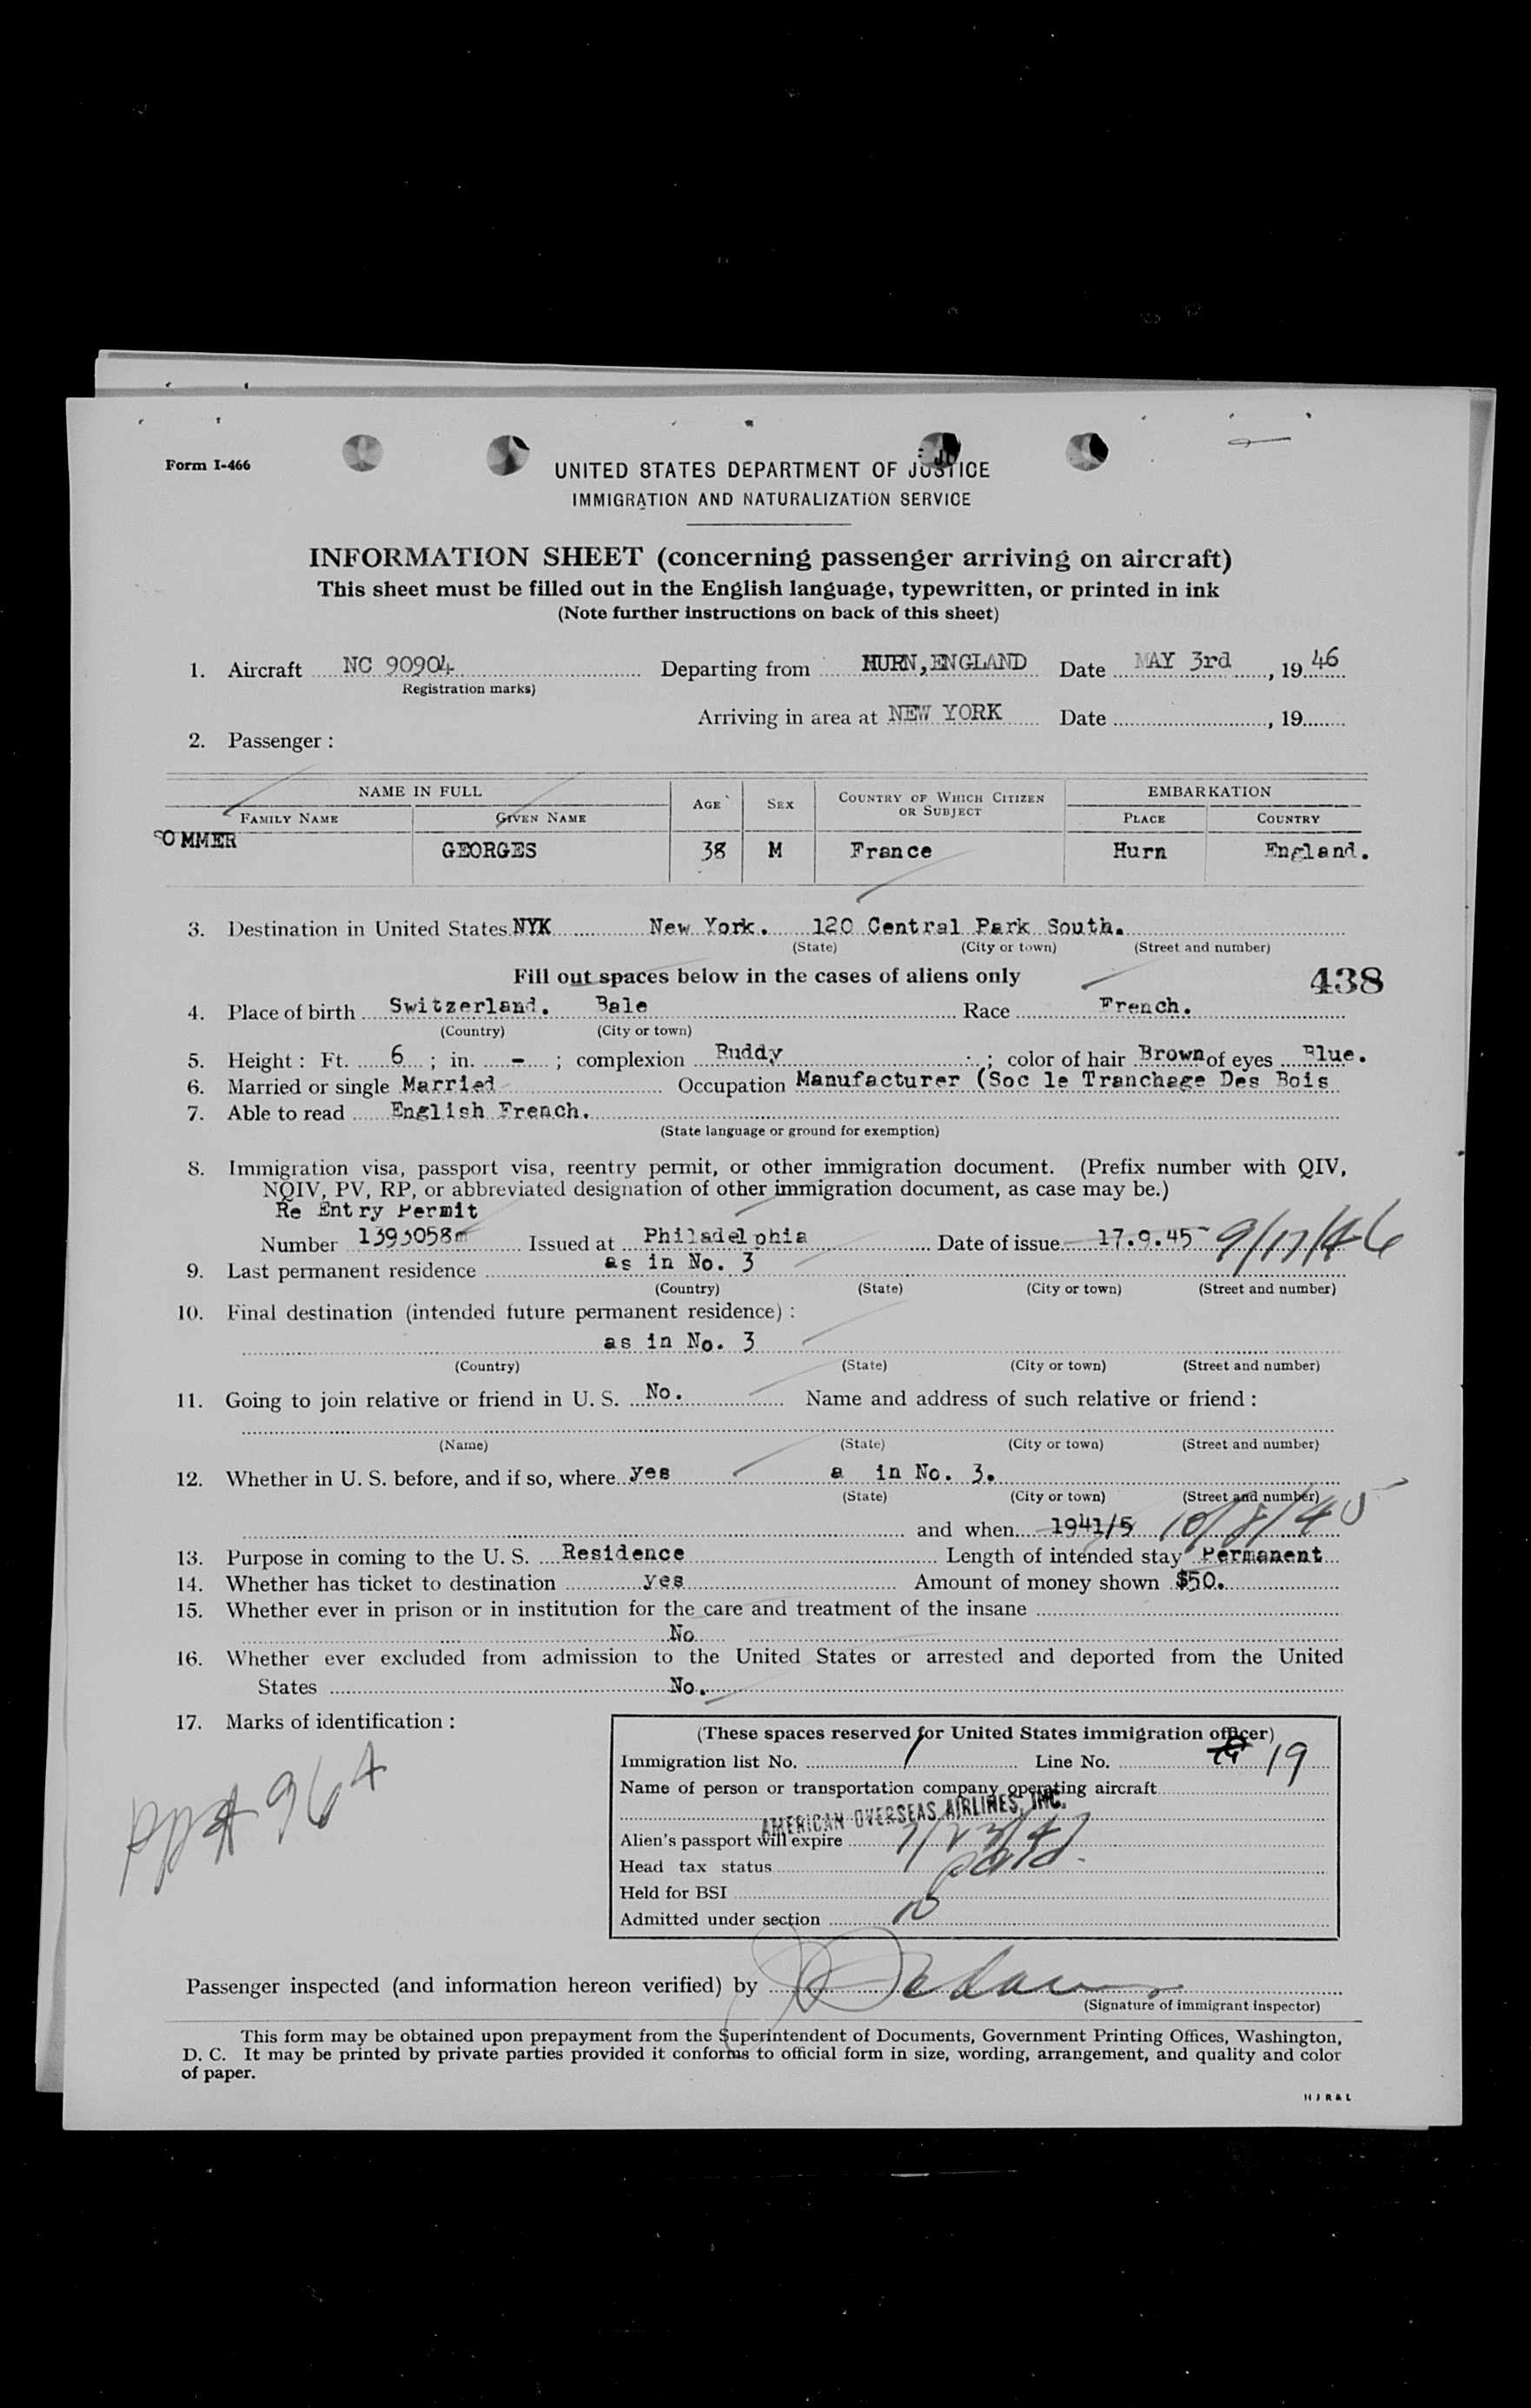 Form I-466
UNITED STATES DEPARTMENT OF JUSTICE
IMMIGRATION AND NATURALIZATION SERVICE
INFORMATION SHEET (concerning passenger arriving on aircraft)
This sheet must be filled out in the English language, typewritten, or printed in ink
(Note further instructions on back of this sheet)
1. Aircraft NC 90904 Departing from HURN, ENGLAND Date MAY 3rd, 1946
Registration marks)
Arriving in area at NEW YORK Date , 19
2. Passenger :
NAME IN FULL AGE SEX COUNTRY OF WHICH CITIZEN OR SUBJECT EMBARKATION
FAMILY NAME GIVEN NAME PLACE COUNTRY
SOMMER GEORGES 38 M France Hurn England.
3. Destination in United States NYK New York. 120 Central Park South.
(State) (City or town) (Street and number)
Fill out spaces below in the cases of aliens only 438
4. Place of birth Switzerland. Bale Race French.
(Country) (City or town)
5. Height : Ft. 6 ; in. - ; complexion Ruddy ; color of hair Brown of eyes Blue.
6. Married or single Married Occupation Manufacturer (Soc le Tranchage Des Bois
7. Able to read English French.
(State language or ground for exemption)
8. Immigration visa, passport visa, reentry permit, or other immigration document. (Prefix number with QIV,
NQIV, PV, RP, or abbreviated designation of other immigration document, as case may be.)
Re Entry Permit
Number 1393058 Issued at Philadelphia Date of issue 17.9.45 9/17/46
9. Last permanent residence as in No. 3
(Country) (State) (City or town) (Street and number)
10. Final destination (intended future permanent residence) :
as in No. 3
(Country) (State) (City or town) (Street and number)
11. Going to join relative or friend in U. S. No. Name and address of such relative or friend :
(Name) (State) (City or town) (Street and number)
12. Whether in U. S. before, and if so, where yes a in No. 3.
(State) (City or town) (Street and number)
and when 1941/5 10/8/45
13. Purpose in coming to the U. S. Residence Length of intended stay Permanent
14. Whether has ticket to destination yes Amount of money shown $50.
15. Whether ever in prison or in institution for the care and treatment of the insane
No
16. Whether ever excluded from admission to the United States or arrested and deported from the United
States No.
17. Marks of identification :
(These spaces reserved for United States immigration officer)
Immigration list No. 1 Line No. 19
Name of person or transportation company operating aircraft
AMERICAN OVERSEAS AIRLINES, INC.
Alien's passport will expire 7/23/47
Head tax status paid.
Held for BSI
Admitted under section
Passenger inspected (and information hereon verified) by
(Signature of immigrant inspector)
This form may be obtained upon prepayment from the Superintendent of Documents, Government Printing Offices, Washington,
D. C. It may be printed by private parties provided it conforms to official form in size, wording, arrangement, and quality and color
of paper.
H J R & L